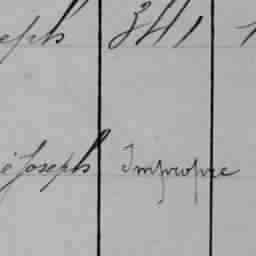 eph 341 1
é Joseph Impropre